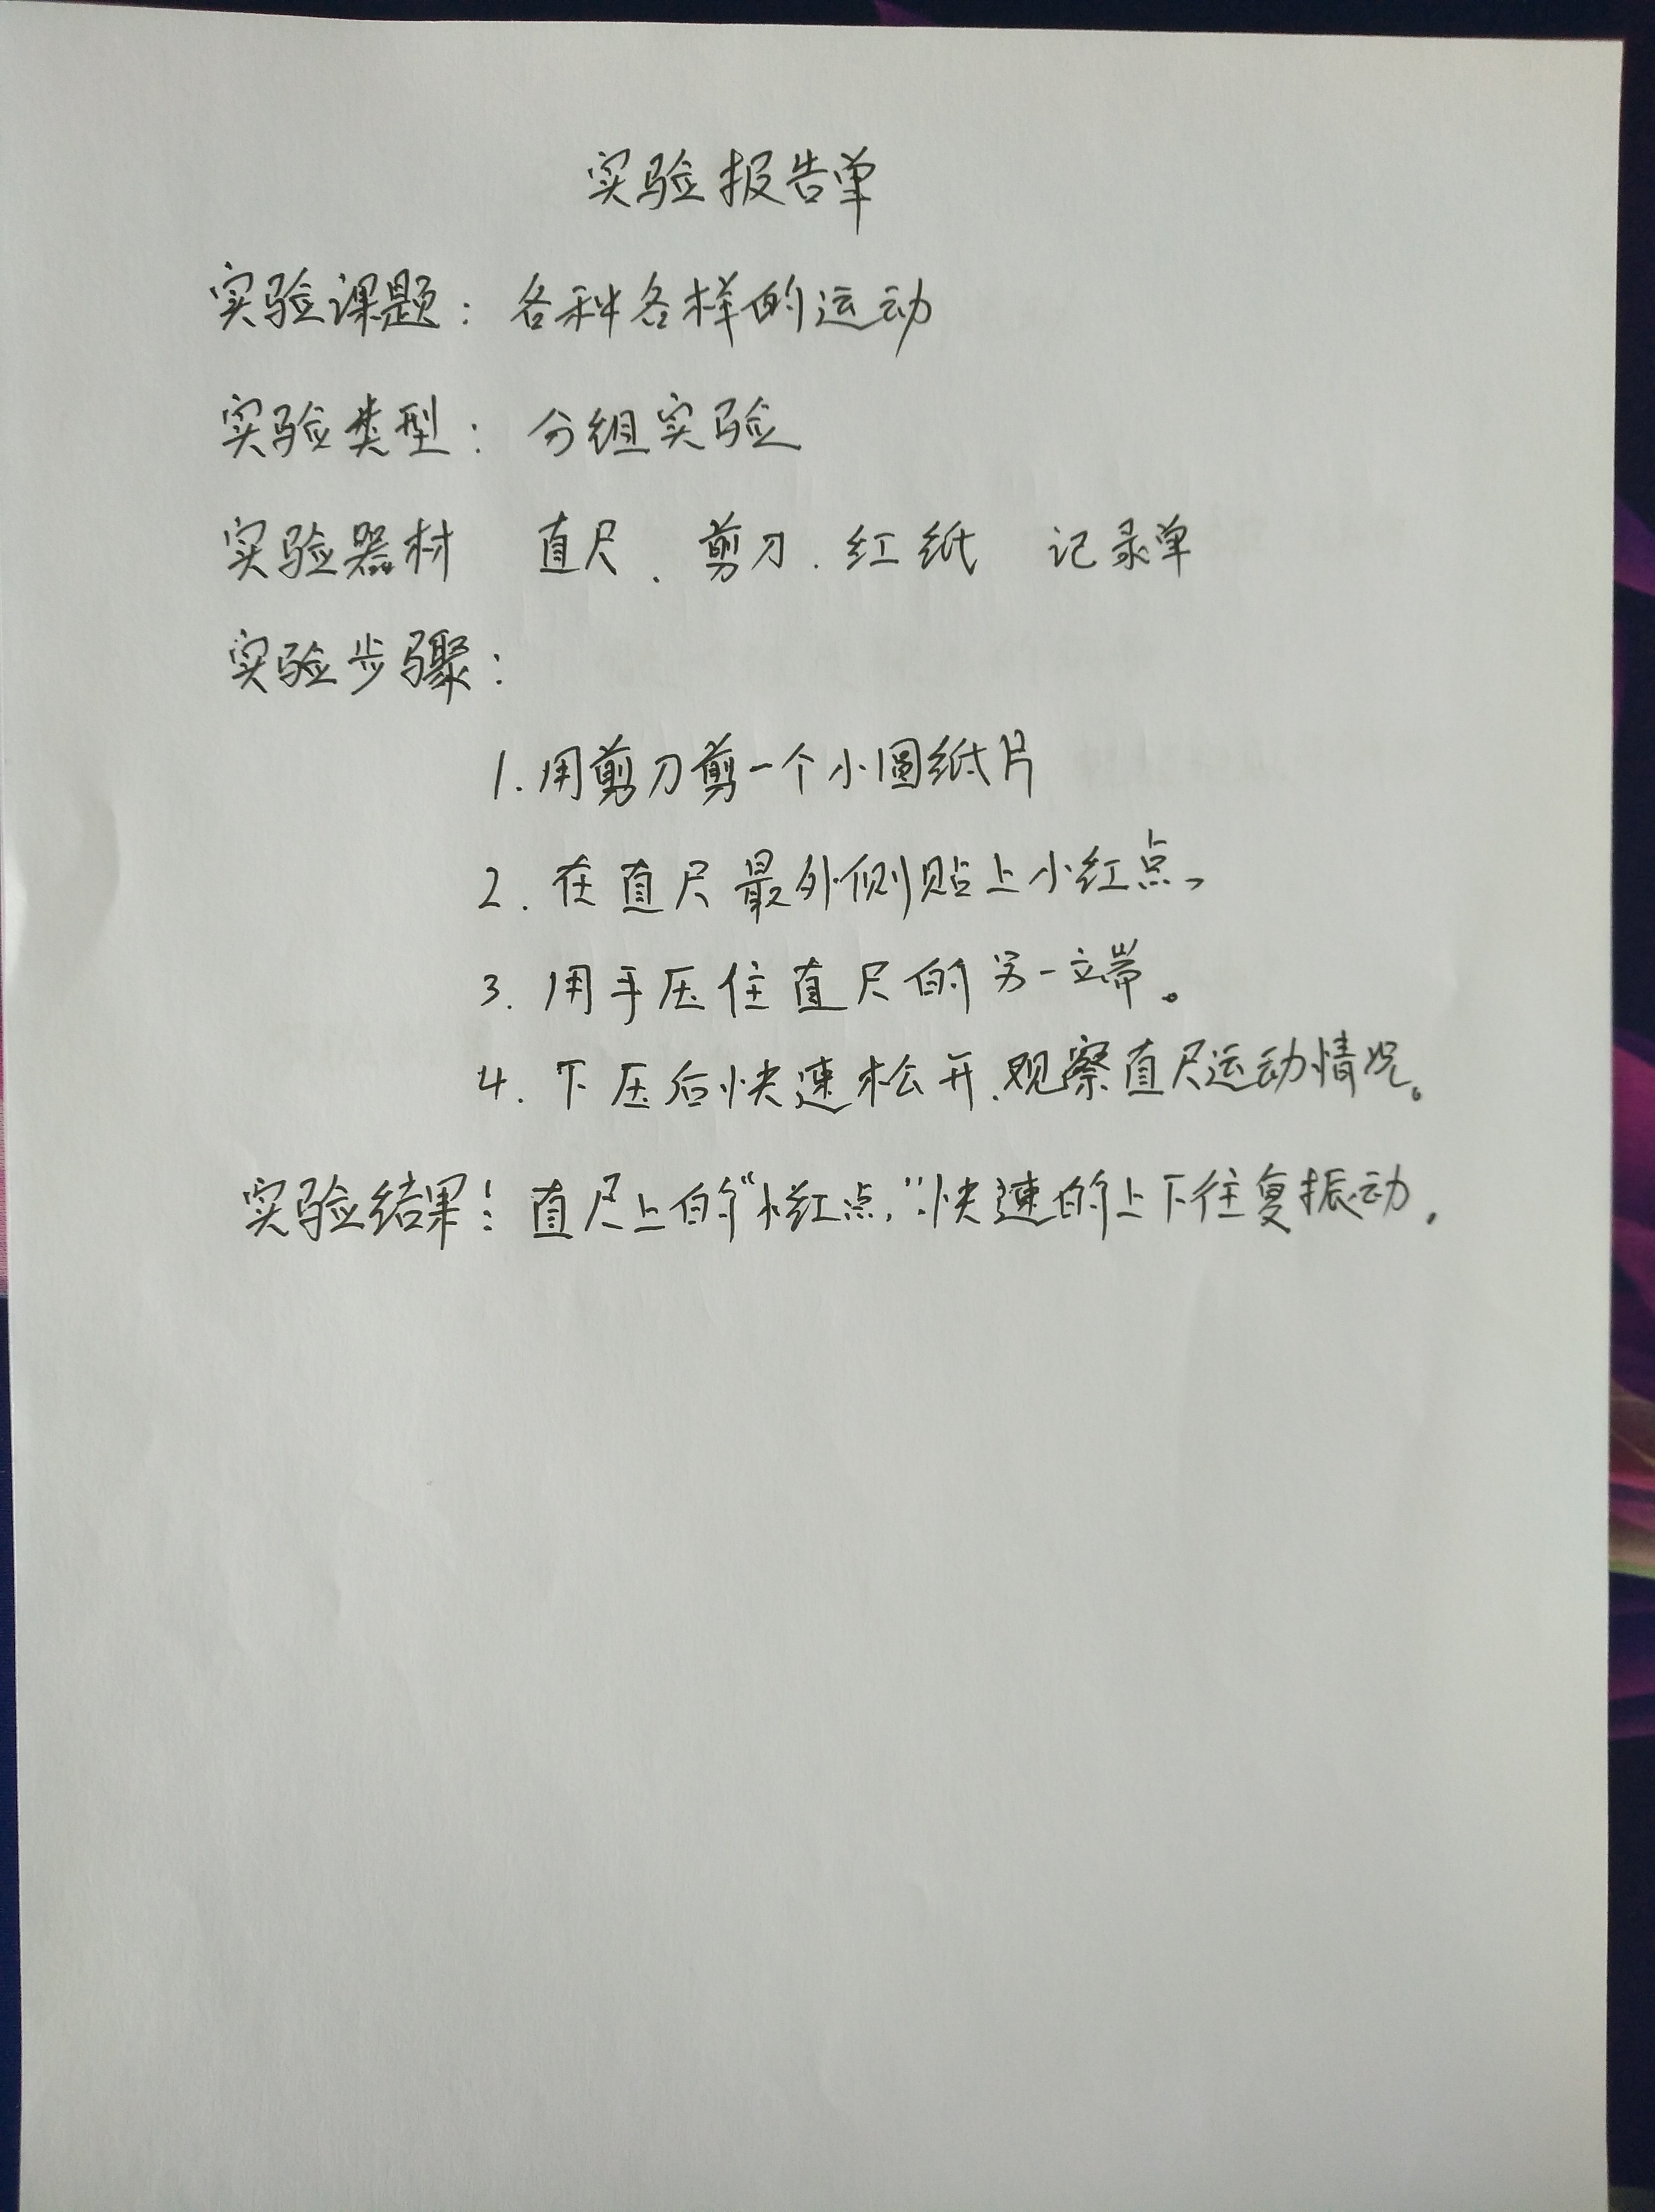 实验报告单
实验课题：各种各样的运动
实验类型：分组实验
实验器材 直尺、剪刀、红纸 记录单
实验步骤：
1.用剪刀剪一个小圆纸片
2.在直尺最外侧贴上小红点、
3.用手压住直尺的另一端。
4.下压后快速松开、观察直尺运动情况。
实验结果：直尺上的“小红点”快速的上下往复振动.